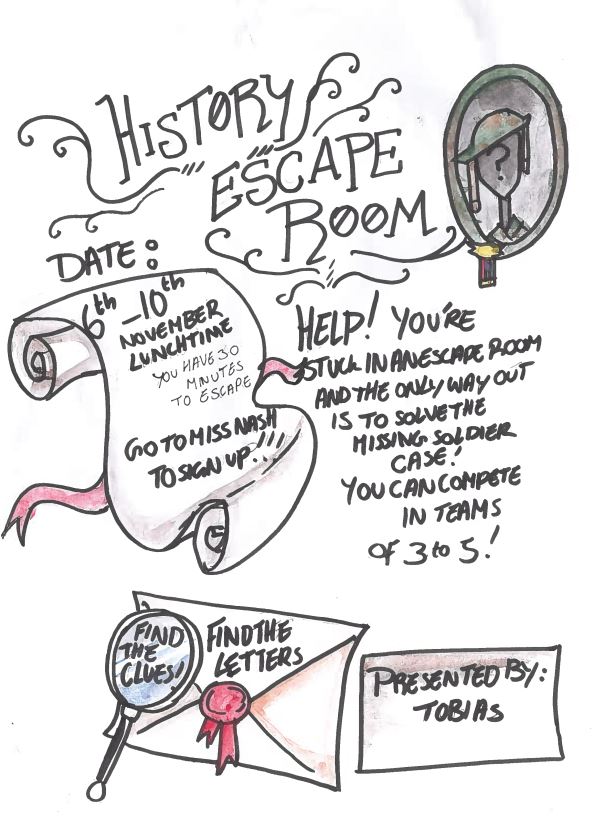 HISTORY
ESCAPE
ROOM
?
DATE:
6th - 10th
NOVEMBER
LUNCHTIME
YOU HAVE 30
MINUTES
TO ESCAPE
GO TO MISS NASH
TO SIGN UP...!!!
HELP! YOU'RE
STUCK IN AN ESCAPE ROOM
AND THE ONLY WAY OUT
IS TO SOLVE THE
MISSING SOLDIER
CASE!
YOU CAN COMPETE
IN TEAMS
OF 3 to 5!
FIND
THE
CLUES!
FIND THE
LETTERS
PRESENTED BY:
TOBIAS